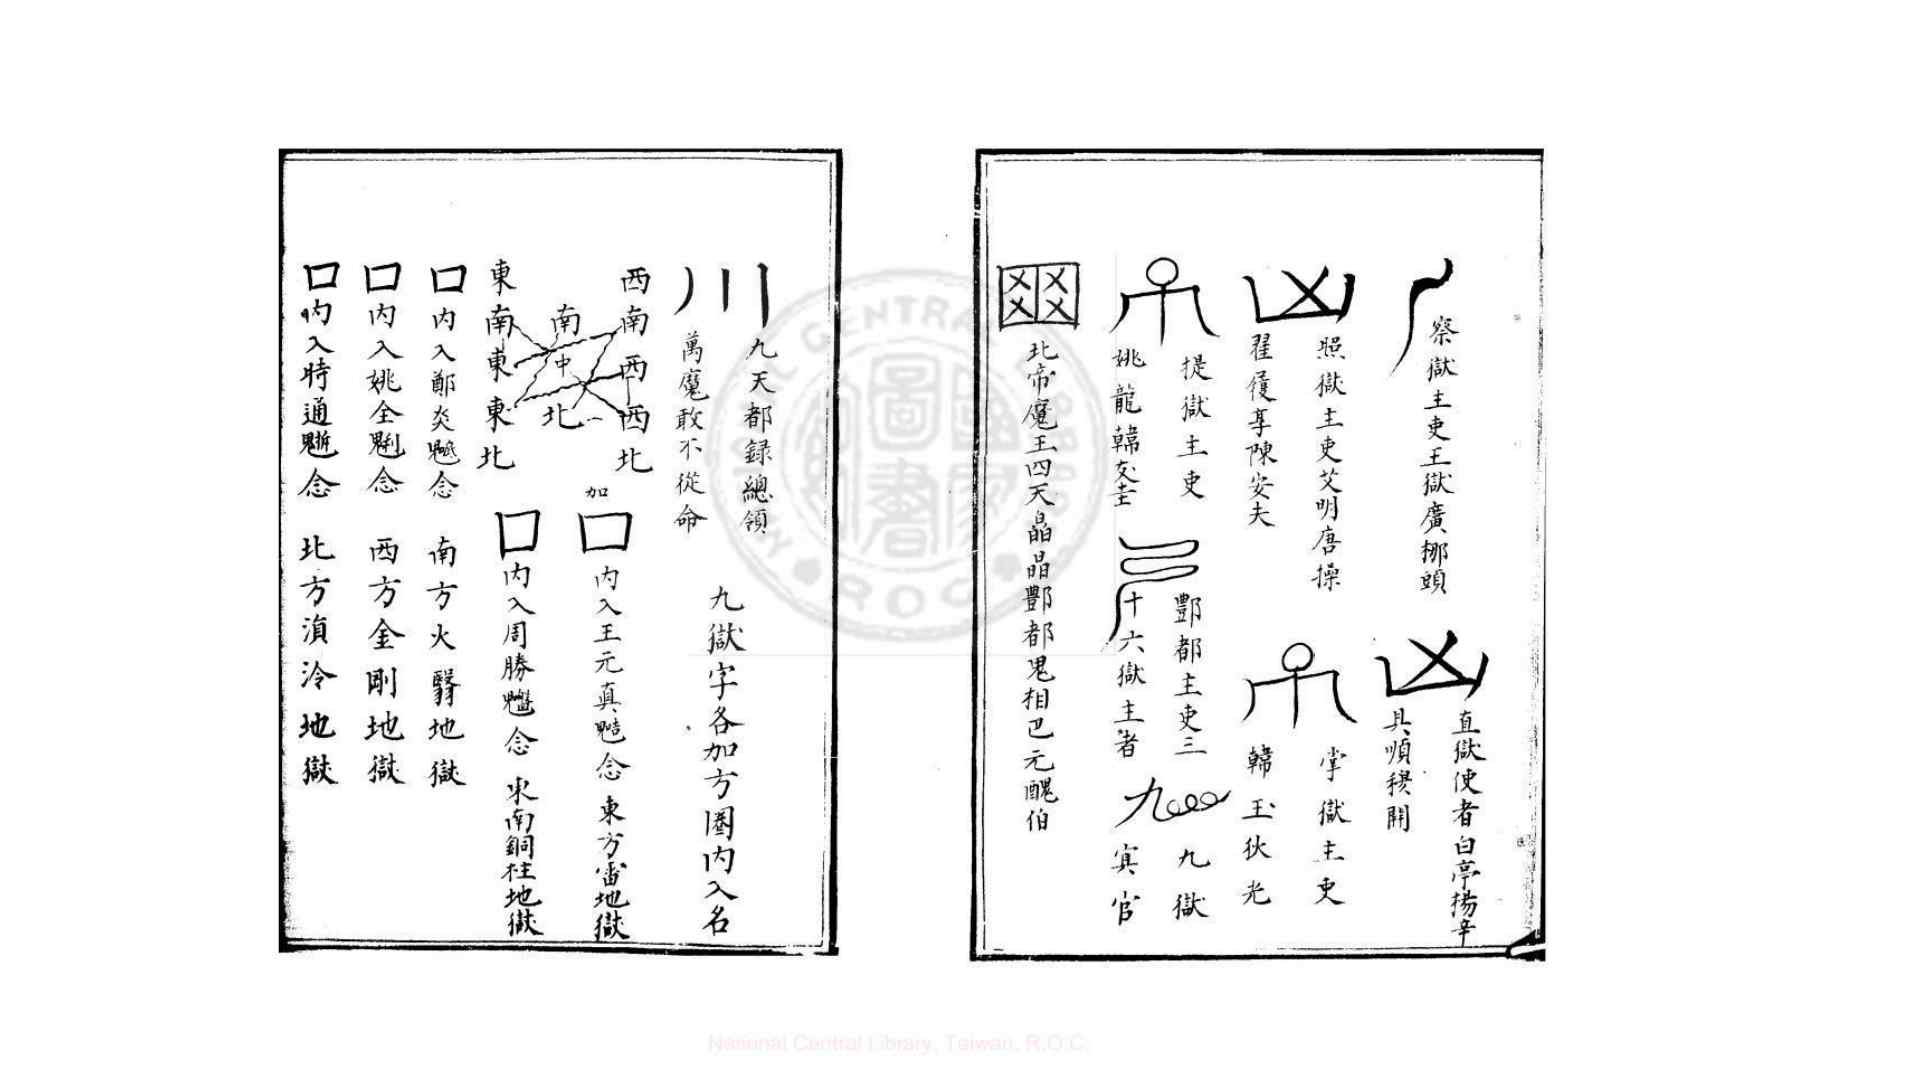 察獄主吏王獄廣挪頭
直獄使者白亭揚辛
具順稷開
照獄主吏艾明唐操
翟徱享陳安夫
掌獄主吏
韓玉狄光
提獄主吏
姚龍韓交圭
酆都主吏三
十六獄主者
九獄
冥官
北帝魔王四天晶晶酆都鬼相巴元醜伯
九天都録總領
萬魔敢不從命
九獄字各加方圈内入名
西南西西北
南
中
北
東南東東北
加
口内入王元真念東方雷地獄
口内入周勝念東南銅柱地獄
口内入鄭炎念南方火翳地獄
口内入姚全念西方金剛地獄
口内入時通念北方湏泠地獄
National Central Library, Taiwan, R.O.C.